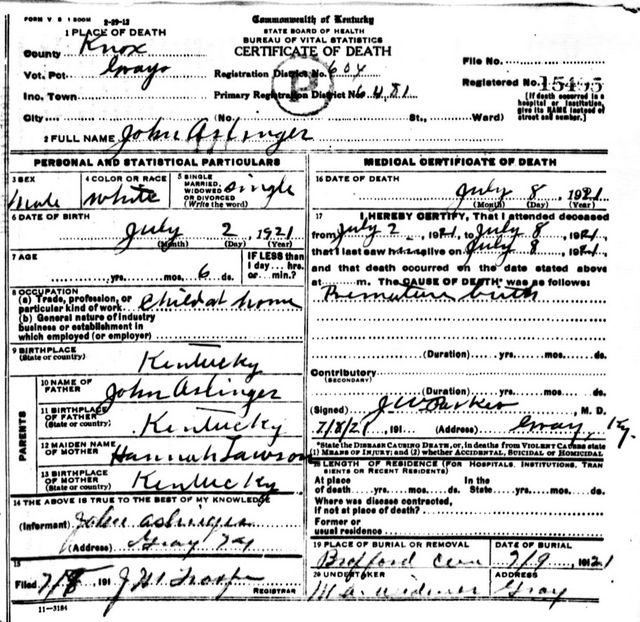 FORM V S 1 500M 2-29-12
Commonwealth of Kentucky
STATE BOARD OF HEALTH
BUREAU OF VITAL STATISTICS
CERTIFICATE OF DEATH
1 PLACE OF DEATH
County Knox
Vot. Pct Grays
Inc. Town
City
Registration District No. 604
Primary Registration District No. 6481
(No. St., Ward)
File No.
Registered No. 15455
[If death occurred in a
hospital or institution,
give its NAME instead of
street and number.]
2 FULL NAME John Aslinger
PERSONAL AND STATISTICAL PARTICULARS
3 SEX
Male
4 COLOR OR RACE
white
5 SINGLE
MARRIED,
WIDOWED
OR DIVORCED
(Write the word)
single
6 DATE OF BIRTH
July 2, 1921
(Month) (Day) (Year)
7 AGE
yrs. mos. 6 ds.
IF LESS than
1 day... hrs.
or... min.?
8 OCCUPATION
(a) Trade, profession, or
particular kind of work Child at home
(b) General nature of industry
business or establishment in
which employed (or employer)
9 BIRTHPLACE
(State or country) Kentucky
PARENTS
10 NAME OF
FATHER John Aslinger
11 BIRTHPLACE
OF FATHER
(State or country) Kentucky
12 MAIDEN NAME
OF MOTHER Hannah Lawson
13 BIRTHPLACE
OF MOTHER
(State or country) Kentucky
14 THE ABOVE IS TRUE TO THE BEST OF MY KNOWLEDGE
(Informant) John Aslinger
(Address) Gray Ky
15
Filed 7/8 191 J H Troope
REGISTRAR
11-3184
MEDICAL CERTIFICATE OF DEATH
16 DATE OF DEATH
July 8, 1921
(Month) (Day) (Year)
17 I HEREBY CERTIFY, That I attended deceased
from July 2, 1921, to July 8, 1921
that I last saw h alive on July 8, 1921
and that death occurred on the date stated above
at m. The CAUSE OF DEATH* was as follows:
Premature birth
(Duration) yrs. mos. ds.
Contributory
(SECONDARY)
(Duration) yrs. mos. ds.
(Signed) J W Parker, M. D.
7/8/21, 191 (Address) Gray, Ky.
*State the DISEASE CAUSING DEATH, or, in deaths from VIOLENT CAUSES state
(1) MEANS OF INJURY; and (2) whether ACCIDENTAL, SUICIDAL OR HOMICIDAL
18 LENGTH OF RESIDENCE (FOR HOSPITALS, INSTITUTIONS, TRAN
SIENTS OR RECENT RESIDENTS)
At place In the
of death yrs. mos. ds. State yrs. mos. ds.
Where was disease contracted,
if not at place of death?
Former or
usual residence
19 PLACE OF BURIAL OR REMOVAL
DATE OF BURIAL
7/9 1921
20 UNDERTAKER
ADDRESS
Gray